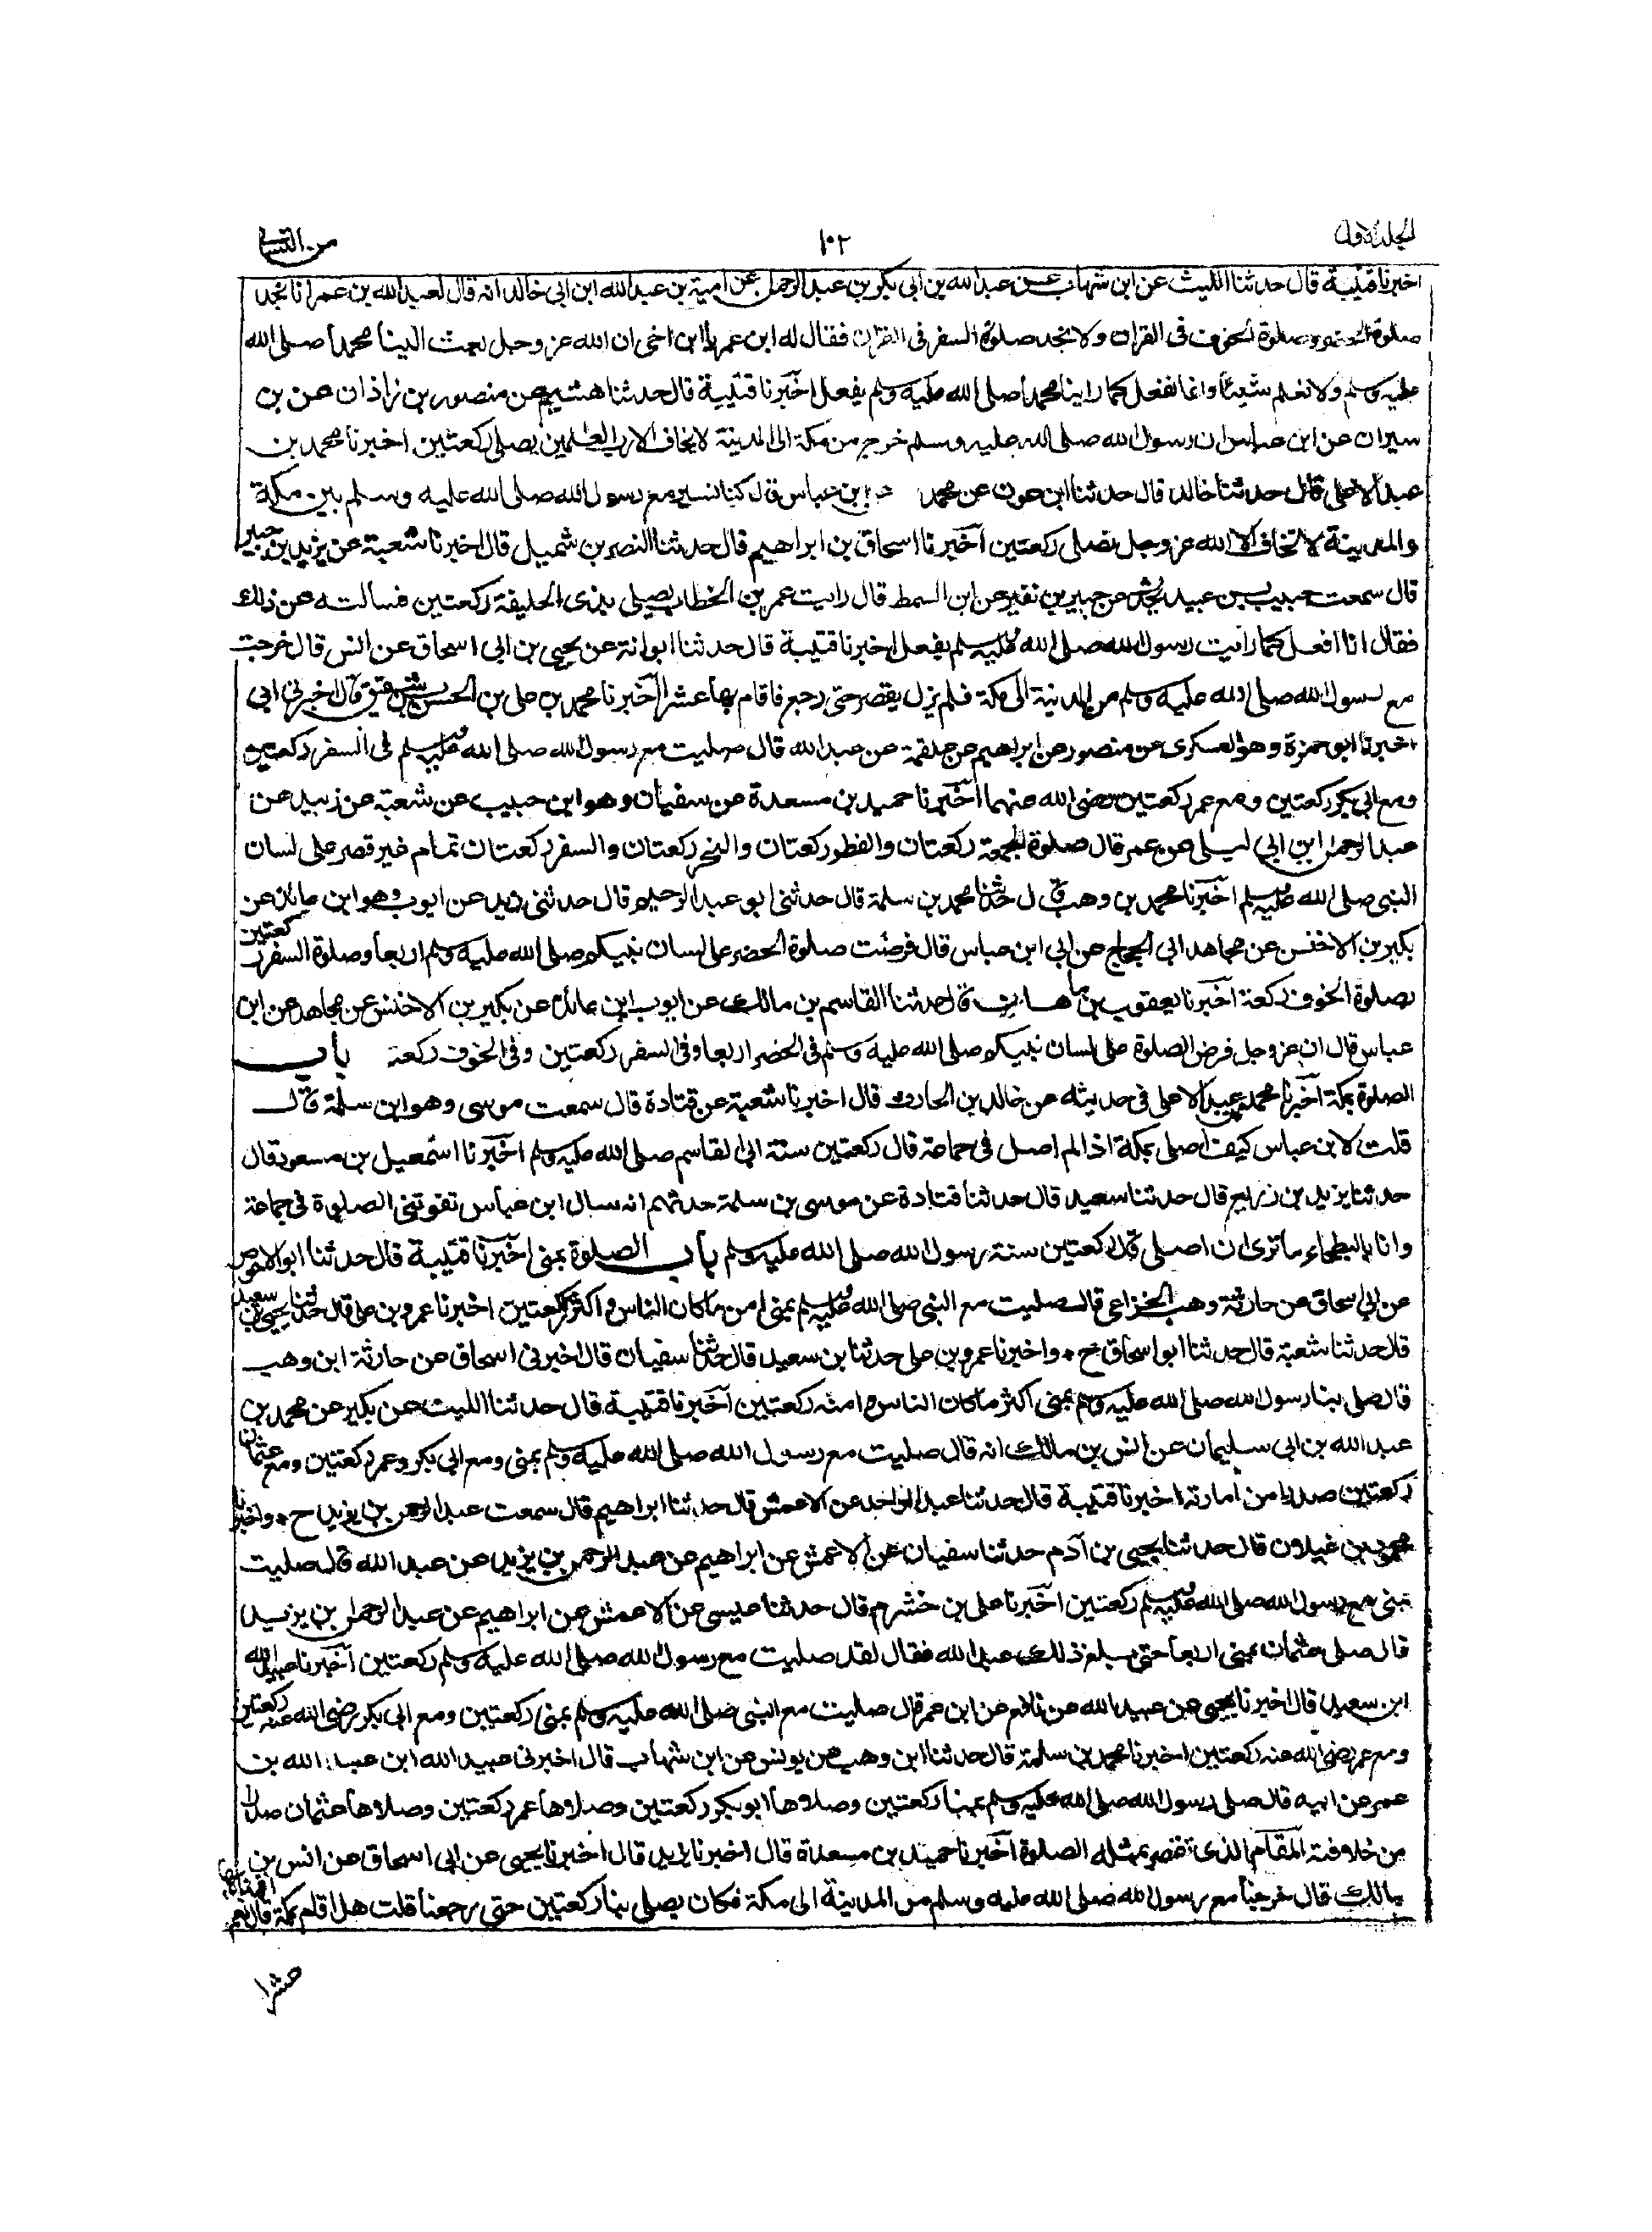 المجلد الاول ١٠٢ من النسائي
اخبرنا قتيبة قال حدثنا الليث عن ابن شهاب عن عبدالله بن ابى بكر بن عبدالرحمن عن امية بن عبدالله ابن ابى خالد انه قال لعبدالله بن عمر انا نجد
صلوة الحضر وصلوة الخوف فى القران ولا نجد صلوة السفر فى القران فقال له ابن عمر يا ابن اخى ان الله عز وجل بعث الينا محمدا صلى الله
عليه وسلم ولا نعلم شيئا وانما نفعل كما راينا محمدا صلى الله عليه وسلم يفعل اخبرنا قتيبة قال حدثنا هشيم عن منصور بن زاذان عن بن
سيران عن ابن عباس ان رسول الله صلى الله عليه وسلم خرج من مكة الى المدينة لا يخاف الا رب العلمين يصلى ركعتين اخبرنا محمد بن
عبد الاعلى قال حدثنا خالد قال حدثنا ابن عون عن محمد ابن عباس قال كنا نسير مع رسول الله صلى الله عليه وسلم بين مكة
والمدينة لا نخاف الا الله عز وجل نصلى ركعتين اخبرنا اسحاق بن ابراهيم قال حدثنا النضر بن شميل قال اخبرنا شعبة عن يزيد بن خمير
قال سمعت حبيب بن عبيد يحدث عن جبير بن نفير عن ابن السمط قال رايت عمر بن الخطاب يصلى بذى الحليفة ركعتين فسالته عن ذلك
فقال انا افعل كما رايت رسول الله صلى الله عليه وسلم يفعل اخبرنا قتيبة قال حدثنا ابوانة عن يحيى بن ابى اسحاق عن انس قال خرجت
مع رسول الله صلى الله عليه وسلم من المدينة الى مكة فلم يزل يقصر حتى رجع فاقام بها عشرا اخبرنا محمد بن على بن الحسن بن شقيق قال اخبرنى ابى
اخبرنا ابو حمزة وهو العسكرى عن منصور عن ابراهيم عن علقمة عن عبدالله قال صليت مع رسول الله صلى الله عليه وسلم فى السفر ركعتين
ومع ابى بكر ركعتين ومع عمر ركعتين رضى الله عنهما اخبرنا حميد بن مسعدة عن سفيان وهو ابن حبيب عن شعبة عن زبيد عن
عبدالرحمن ابن ابى ليلى عن عمر قال صلوة الجمعة ركعتان والفطر ركعتان والنحر ركعتان والسفر ركعتان تمام غير قصر على لسان
النبى صلى الله عليه وسلم اخبرنا محمد بن وهب قال حدثنا محمد بن سلمة قال حدثنى ابو عبدالرحيم قال حدثنى زيد عن ايوب وهو ابن عائذ عن
بكير بن الاخنس عن مجاهد ابى الحجاج عن ابى ابن عباس قال فرضت صلوة الحضر على لسان نبيكم صلى الله عليه وسلم اربعا وصلوة السفر ركعتين
وصلوة الخوف ركعة اخبرنا يعقوب بن ماهان قال حدثنا القاسم بن مالك عن ايوب ابن عائذ عن بكير بن الاخنس عن مجاهد عن ابن
عباس قال ان عز وجل فرض الصلوة على لسان نبيكم صلى الله عليه وسلم فى الحضر اربعا وفى السفر ركعتين وفى الخوف ركعة باب
الصلوة بمكة اخبرنا محمد بن عبد الاعلى فى حديثه عن خالد بن الحارث قال اخبرنا شعبة عن قتادة قال سمعت موسى وهو ابن سلمة قال
قلت لابن عباس كيف اصلى بمكة اذا لم اصل فى جماعة قال ركعتين سنة ابى القاسم صلى الله عليه وسلم اخبرنا اسمعيل بن مسعود قال
حدثنا يزيد بن زريع قال حدثنا سعيد قال حدثنا قتادة عن موسى بن سلمة حدثهم انه سال ابن عباس تفوتنى الصلوة فى جماعة
وانا بالبطحاء ما ترى ان اصلى قال ركعتين سنة رسول الله صلى الله عليه وسلم باب الصلوة بمنى اخبرنا قتيبة قال حدثنا ابو الاحوص
عن ابى اسحاق عن حارثة وهب الخزاعى قال صليت مع النبى صلى الله عليه وسلم بمنى امن ما كان الناس واكثره ركعتين اخبرنا عمرو بن على قال حدثنا يحيى بن سعيد
قال حدثنا شعبة قال حدثنا ابو اسحاق ح واخبرنا عمرو بن على حدثنا بن سعيد قال حدثنا سفيان قال اخبرنى اسحاق عن حارثة ابن وهب
قال صلى بنا رسول الله صلى الله عليه وسلم بمنى اكثر ما كان الناس وامنه ركعتين اخبرنا قتيبة قال حدثنا الليث عن بكير عن محمد بن
عبدالله بن ابى سليمان عن انس بن مالك انه قال صليت مع رسول الله صلى الله عليه وسلم بمنى ومع ابى بكر وعمر ركعتين ومع عثمان
ركعتين صدرا من امارته اخبرنا قتيبة قال حدثنا عبدالواحد عن الاعمش قال حدثنا ابراهيم قال سمعت عبدالرحمن بن يزيد ح واخبرنا
محمود بن غيلان قال حدثنا يحيى بن آدم حدثنا سفيان عن الاعمش عن ابراهيم عن عبدالرحمن بن يزيد عن عبدالله قال صليت
بمنى مع رسول الله صلى الله عليه وسلم ركعتين اخبرنا على بن خشرم قال حدثنا عيسى عن الاعمش عن ابراهيم عن عبدالرحمن بن يزيد
قال صلى عثمان بمنى اربعا حتى بلغ ذلك عبدالله فقال لقد صليت مع رسول الله صلى الله عليه وسلم ركعتين اخبرنا عبيدالله
ابن سعيد قال اخبرنا يحيى عن عبيدالله عن نافع عن ابن عمر قال صليت مع النبى صلى الله عليه وسلم بمنى ركعتين ومع ابى بكر رضى الله عنه ركعتين
ومع عمر رضى الله عنه ركعتين اخبرنا محمد بن سلمة قال حدثنا ابن وهب عن يونس عن ابن شهاب قال اخبرنى عبيدالله ابن عبدالله بن
عمر عن ابيه قال صلى رسول الله صلى الله عليه وسلم بمنا ركعتين وصلاها ابوبكر ركعتين وصلاها عمر ركعتين وصلاها عثمان صدرا
من خلافته المقام الذى تقصر بمثله الصلوة اخبرنا حميد بن مسعدة قال اخبرنا يزيد قال اخبرنا يحيى عن ابى اسحاق عن انس بن
مالك قال خرجنا مع رسول الله صلى الله عليه وسلم من المدينة الى مكة فكان يصلى بنا ركعتين حتى رجعنا قلت هل اقام بمكة قال نعم
عشرا